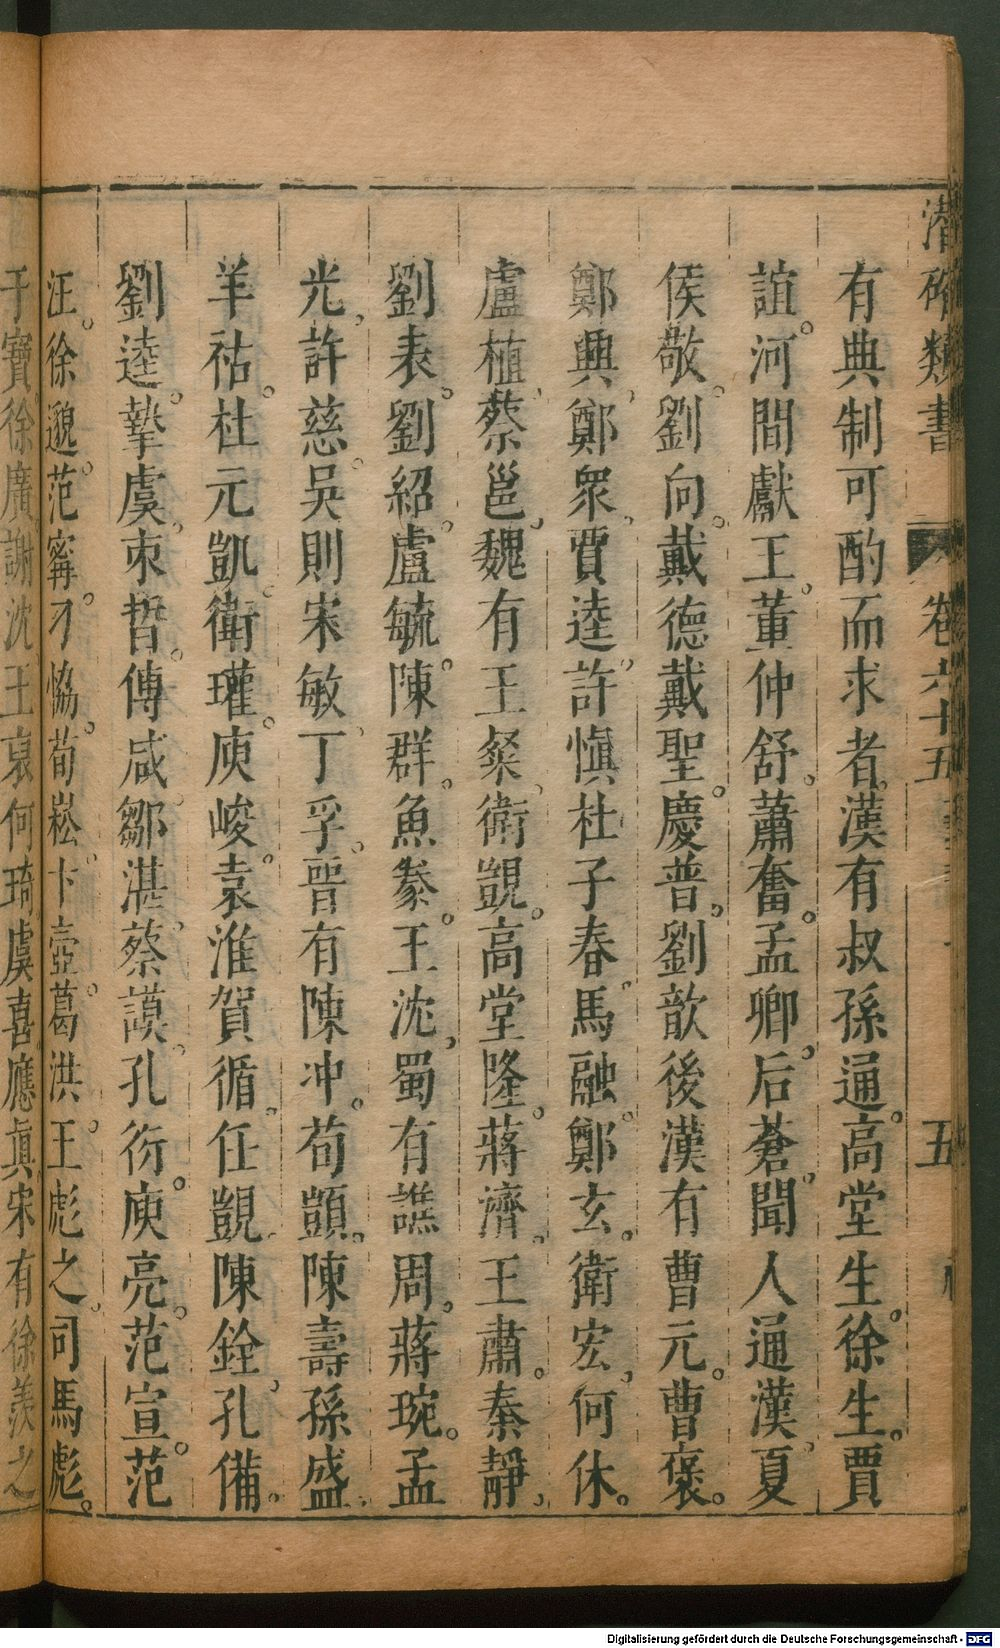 潛確類書 卷六十五 五
有典制可酌而求者漢有叔孫通。高堂生。徐生。賈
誼。河間獻王。董仲舒。蕭奮。孟卿。后蒼。聞人通漢。夏
侯敬。劉向。戴德戴聖。慶普。劉歆後漢有曹元。曹褒。
鄭興。鄭眾。賈逵。許慎。杜子春。馬融。鄭玄。衛宏。何休。
盧植。蔡邕。魏有王粲。衛覬。高堂隆。蔣濟。王肅。秦靜。
劉表。劉紹。盧毓。陳群。魚豢。王沈。蜀有譙周。蔣琬。孟
光。許慈。吳則宋敏。丁孚。晋有陳冲。荀顗。陳壽孫盛
羊祜。杜元凱。衛瓘。庾峻。袁淮賀循。任覬陳銓。孔備。
劉逵。摯虞。束晳。傅咸。鄒湛。蔡謨。孔衍。庾亮。范宣。范
汪。徐邈。范甯。刁恊。荀崧。卞壼。葛洪。王彪之。司馬彪。
于寶。徐廣謝沈王裒何琦虞喜。應眞。宋有徐羨之
Digitalisierung gefördert durch die Deutsche Forschungsgemeinschaft - DFG